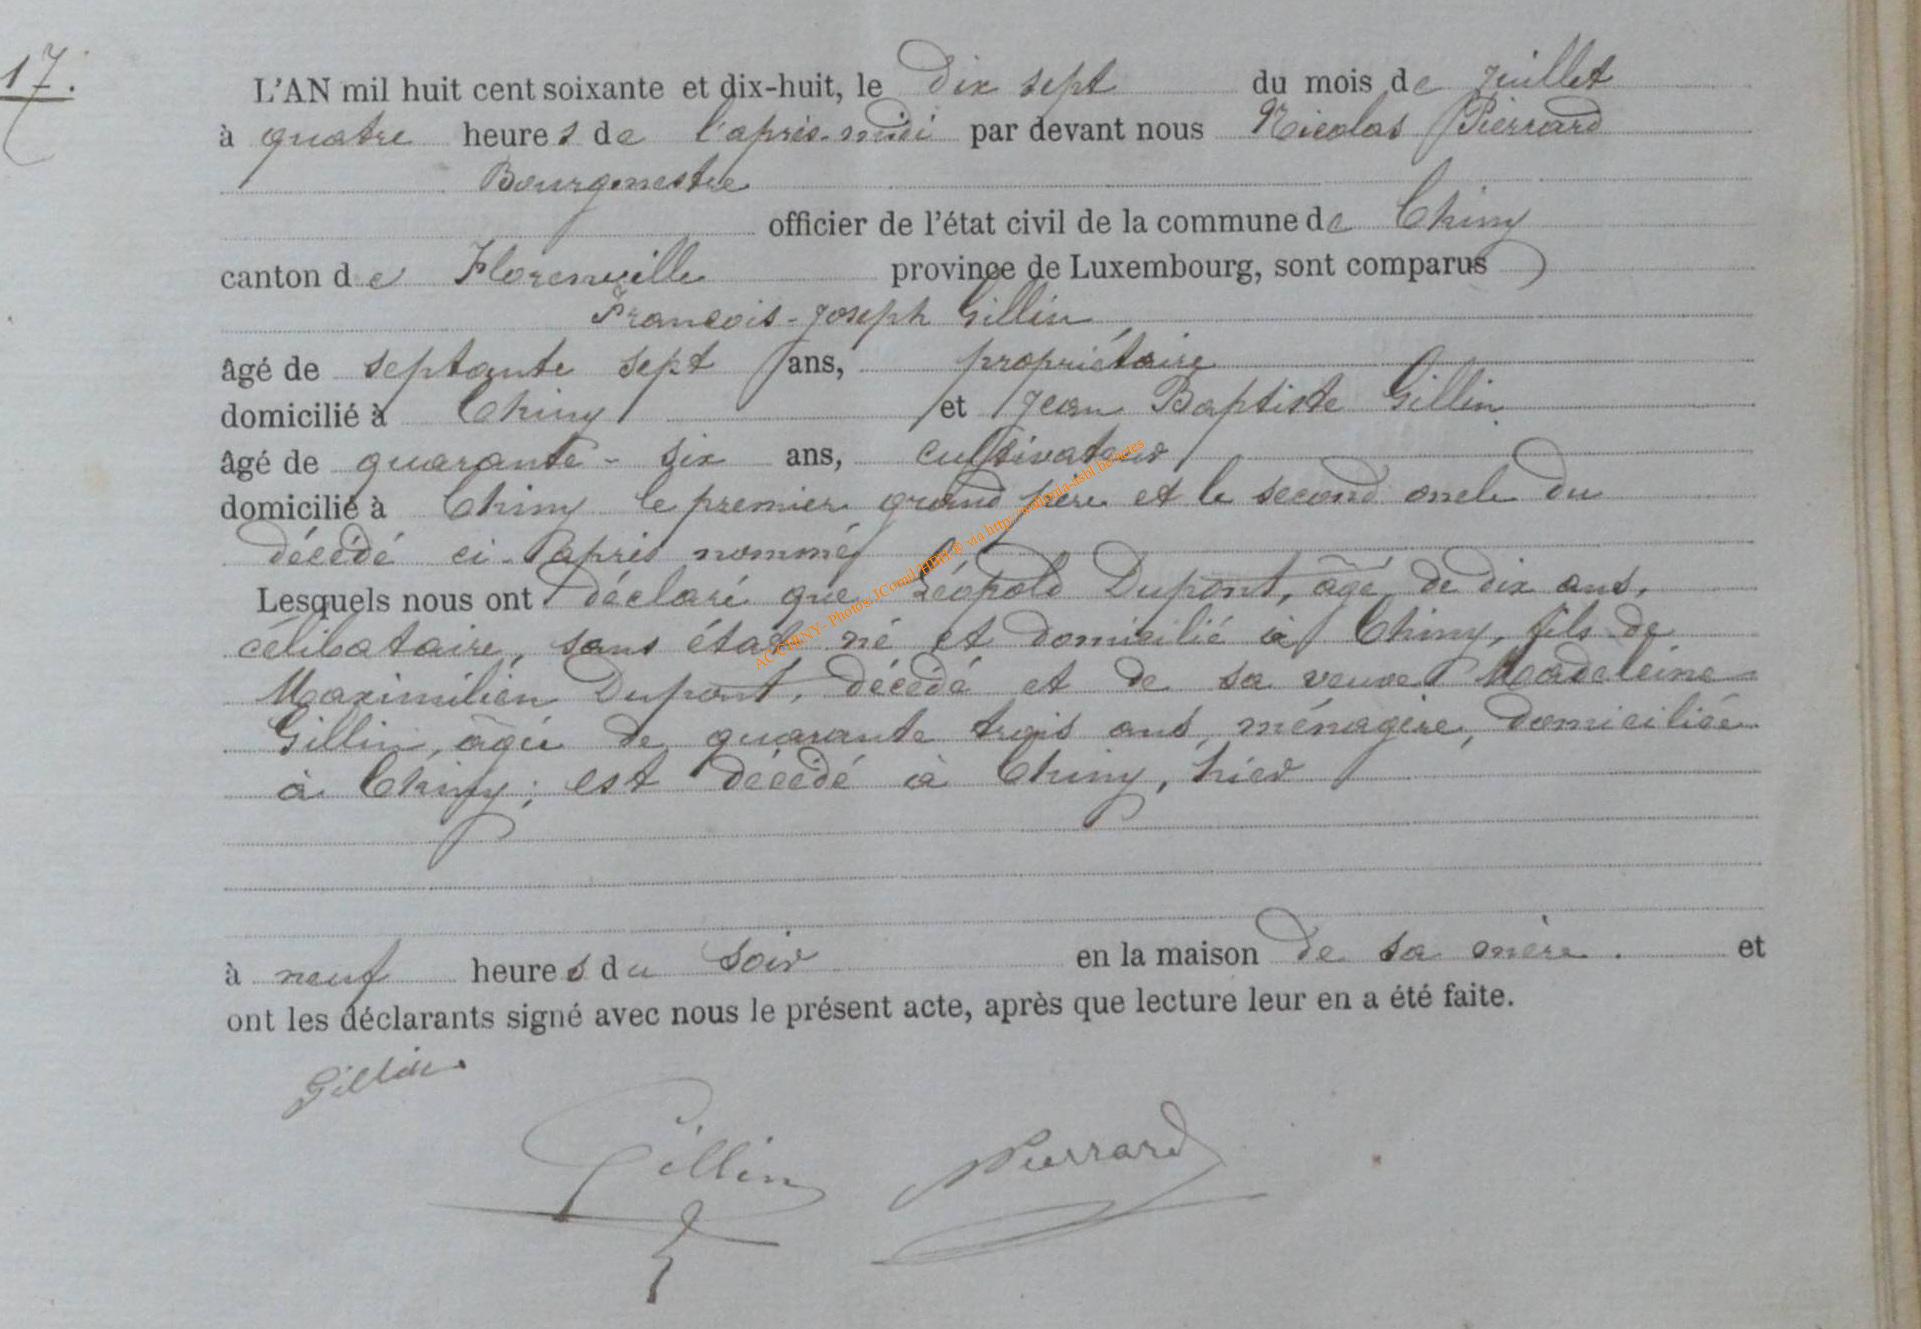 17.
L'AN mil huit cent soixante et dix-huit, le dix sept du mois de juillet
à quatre heures de l'après-midi par devant nous Nicolas Pierrard
Bourgmestre
officier de l'état civil de la commune de Chiny
canton de Florenville province de Luxembourg, sont comparus
François-Joseph Gillin
âgé de septante sept ans, propriétaire
domicilié à Chiny et Jean Baptiste Gillin
âgé de quarante-six ans, cultivateur
domicilié à Chiny le premier grand père et le second oncle du
décédé ci-après nommé
Lesquels nous ont déclaré que Léopold Dupont, âgé de dix ans,
célibataire, sans état né et domicilié à Chiny, fils de
Maximilien Dupont, décédé et de sa veuve Madeleine
Gillin, âgée de quarante trois ans, ménagère, domiciliée
à Chiny; est décédé à Chiny, hier
à neuf heures du soir en la maison de sa mère. et
ont les déclarants signé avec nous le présent acte, après que lecture leur en a été faite.
Gillin
Gillin Pierrard